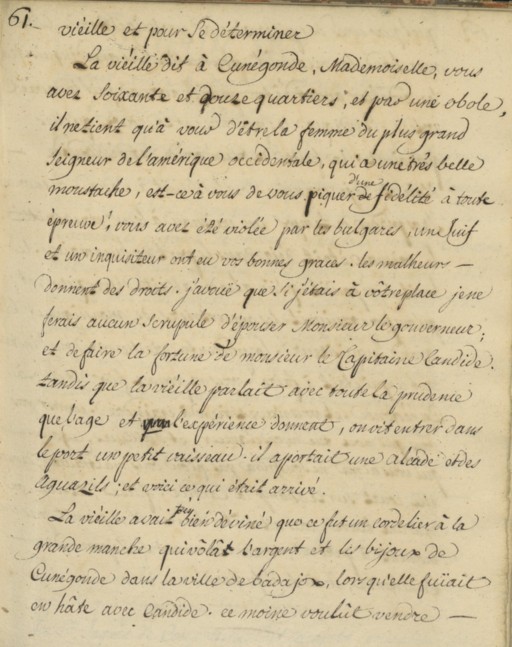 61.
vieille et pour se déterminer
La vieille dit à Cunégonde, Mademoiselle, vous
avez soixante et douze quartiers, et pas une obole,
il ne tient qu'à vous d'être la femme du plus grand
seigneur de l'amérique occidentale, qui a une très belle
moustache, est-ce à vous de vous piquer d'une fidélité à toute
épreuve! vous avez été violée par les bulgares, un Juif
et un inquisiteur ont eu vos bonnes graces. les malheurs —
donnent des droits. j'avouë que si j'étais à vôtre place je ne
ferais aucun scrupule d'épouser Monsieur le gouverneur;
et de faire la fortune de monsieur le Capitaine Candide.
tandis que la vieille parlait avec toute la prudence
que l'age et l'expérience donnent, on vit entrer dans
le port un petit vaisseau. il aportait une alcade et des
alguazils; et voici ce qui était arrivé.
La vieille avait très bien déviné que ce fut un cordelier à la
grande manche qui vôlât l'argent et les bijoux de
Cunégonde dans la ville de badajox, lors qu'elle fuïait
en hâte avec Candide. ce moine voulût vendre —